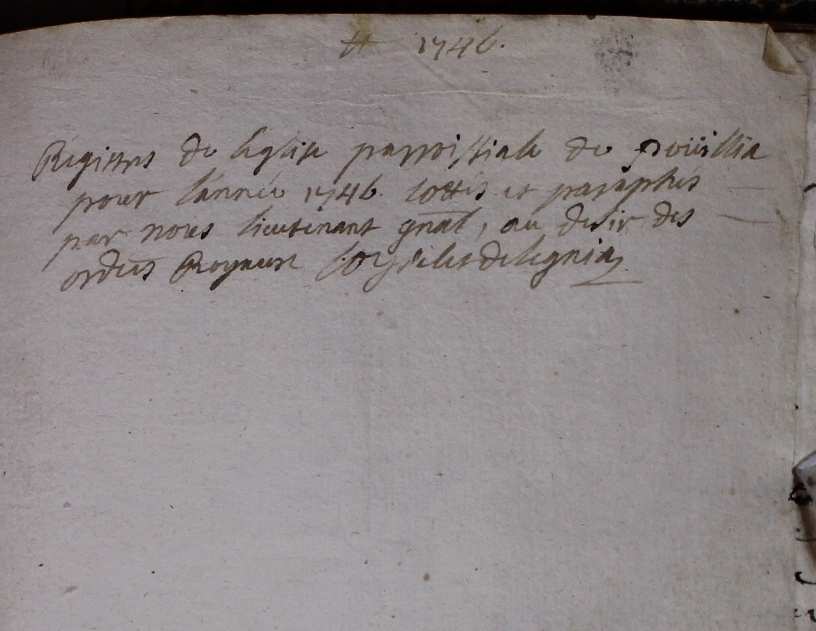 1746.
Registres de leglise parroissiale de pouillia
pour l'année 1746. cottés et paraphés
par nous lieutenant gñal, au desir des
ordres Royaux